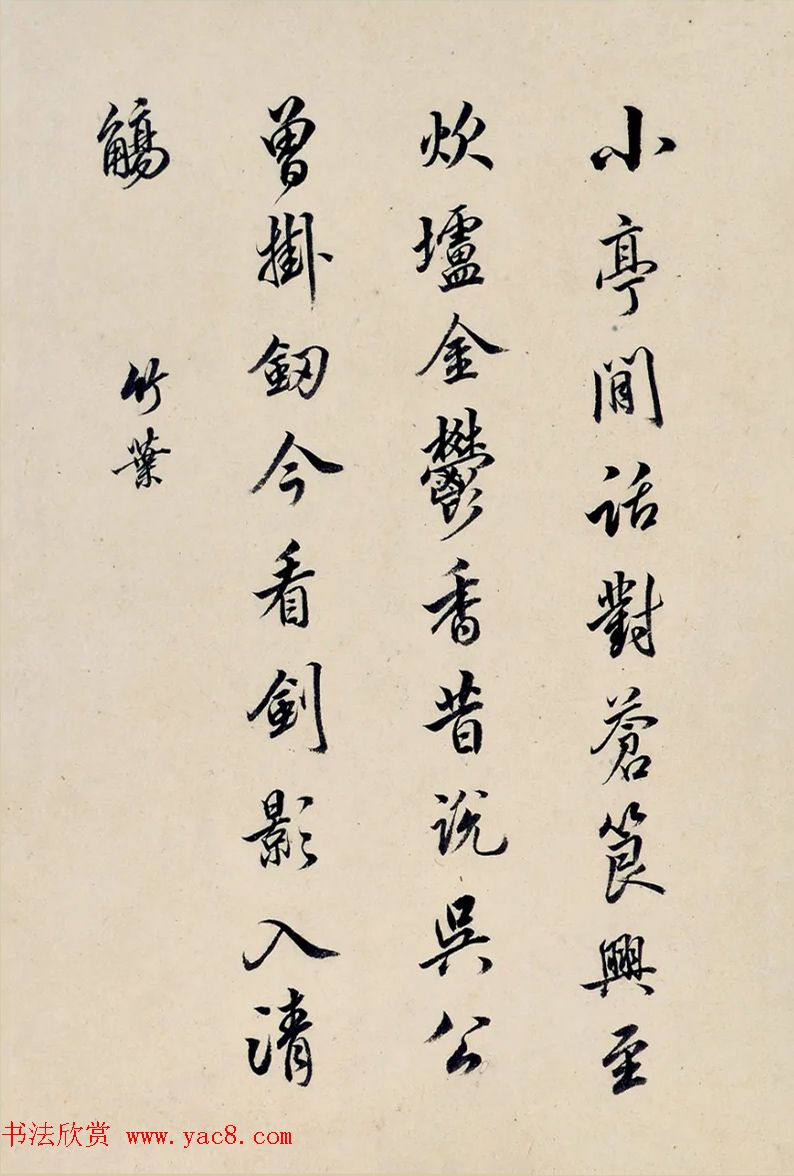 小亭閒話對蒼筤興至
炊壚金鬱香昔說吳公
曾掛劒今看劍影入清
觴
竹葉
书法欣赏 www.yac8.com